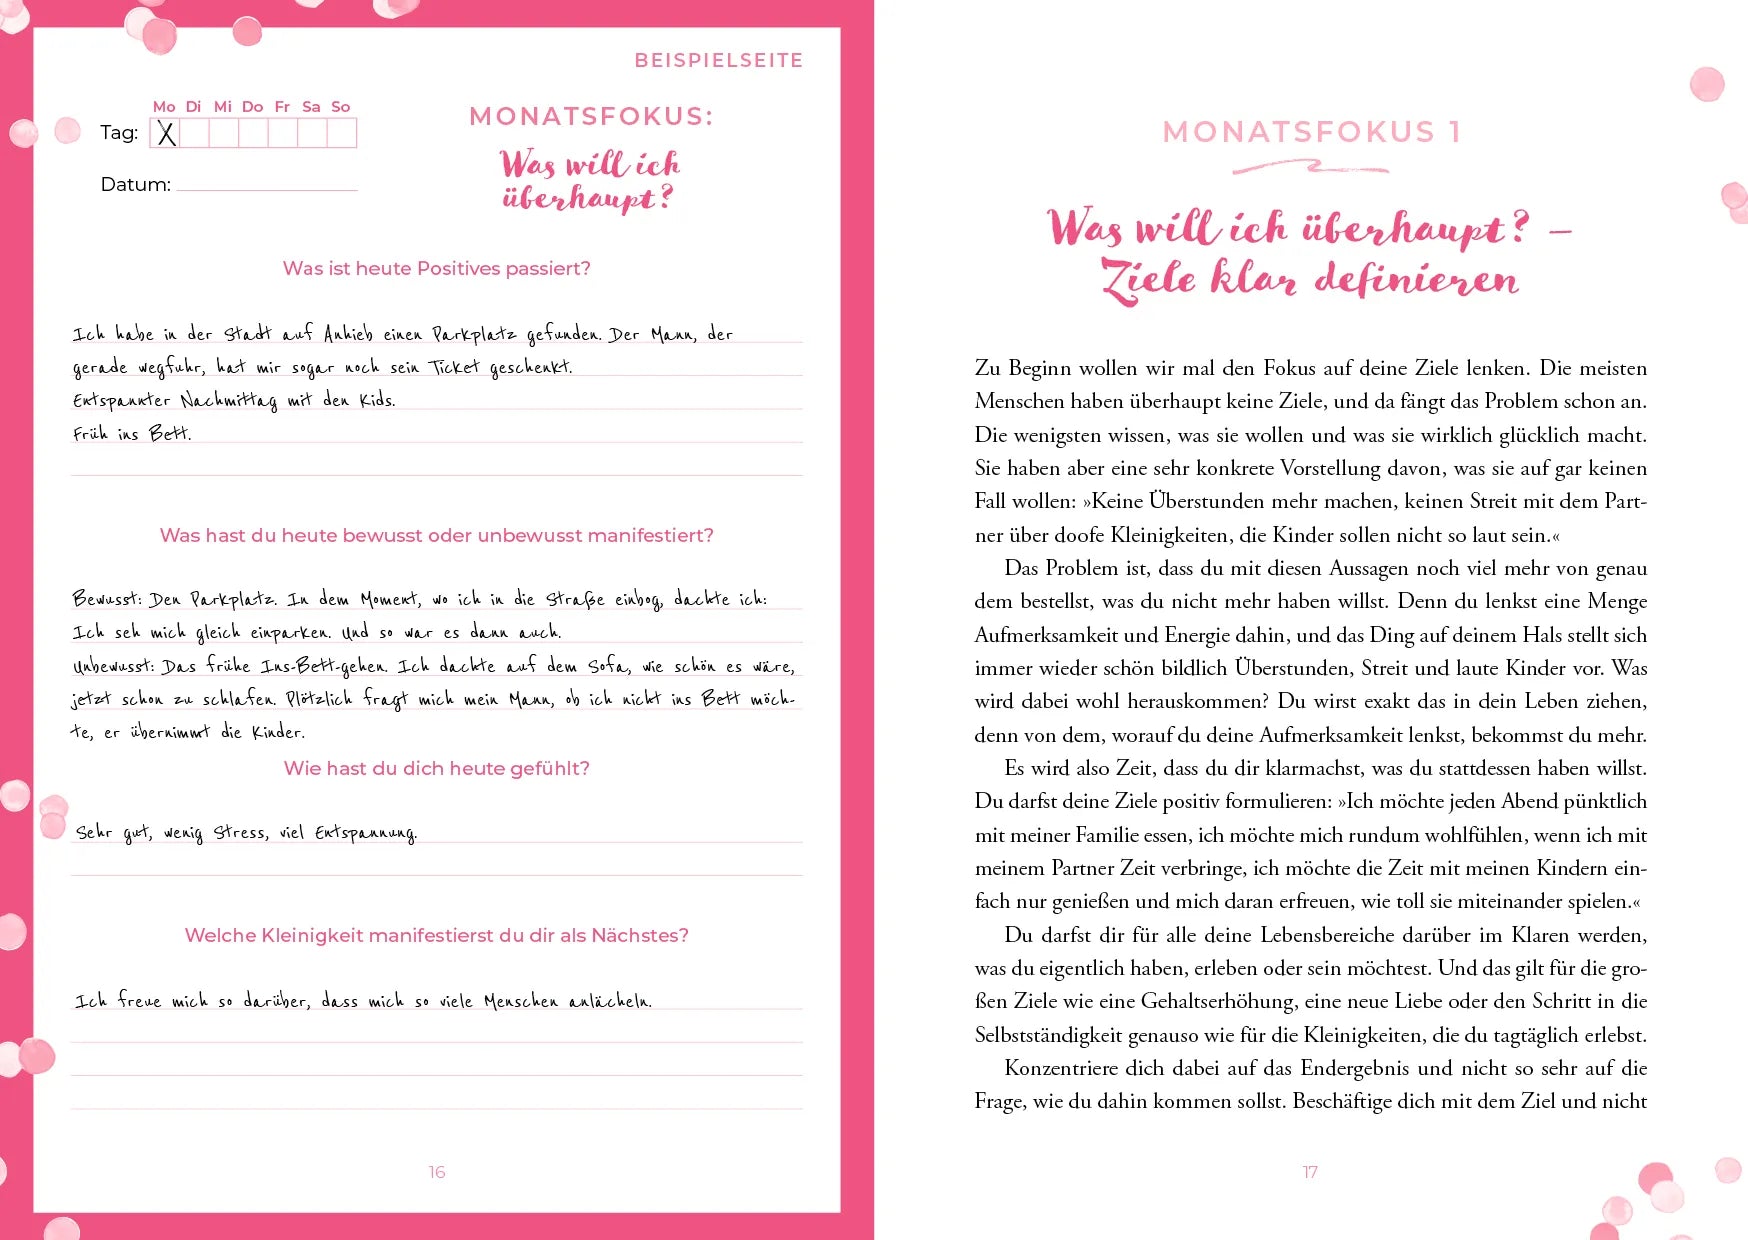 BEISPIELSEITE
Mo Di Mi Do Fr Sa So
Tag: X
Datum:
MONATSFOKUS:
Was will ich
überhaupt?
Was ist heute Positives passiert?
Ich habe in der Stadt auf Anhieb einen Parkplatz gefunden. Der Mann, der
gerade wegfuhr, hat mir sogar noch sein Ticket geschenkt.
Entspannter Nachmittag mit den Kids.
Früh ins Bett.
Was hast du heute bewusst oder unbewusst manifestiert?
Bewusst: Den Parkplatz. In dem Moment, wo ich in die Straße einbog, dachte ich:
Ich seh mich gleich einparken. Und so war es dann auch.
Unbewusst: Das frühe Ins-Bett-gehen. Ich dachte auf dem Sofa, wie schön es wäre,
jetzt schon zu schlafen. Plötzlich fragt mich mein Mann, ob ich nicht ins Bett möch-
te, er übernimmt die Kinder.
Wie hast du dich heute gefühlt?
Sehr gut, wenig Stress, viel Entspannung.
Welche Kleinigkeit manifestierst du dir als Nächstes?
Ich freue mich so darüber, dass mich so viele Menschen anlächeln.
16
MONATSFOKUS 1
Was will ich überhaupt? –
Ziele klar definieren
Zu Beginn wollen wir mal den Fokus auf deine Ziele lenken. Die meisten
Menschen haben überhaupt keine Ziele, und da fängt das Problem schon an.
Die wenigsten wissen, was sie wollen und was sie wirklich glücklich macht.
Sie haben aber eine sehr konkrete Vorstellung davon, was sie auf gar keinen
Fall wollen: »Keine Überstunden mehr machen, keinen Streit mit dem Part-
ner über doofe Kleinigkeiten, die Kinder sollen nicht so laut sein.«
Das Problem ist, dass du mit diesen Aussagen noch viel mehr von genau
dem bestellst, was du nicht mehr haben willst. Denn du lenkst eine Menge
Aufmerksamkeit und Energie dahin, und das Ding auf deinem Hals stellt sich
immer wieder schön bildlich Überstunden, Streit und laute Kinder vor. Was
wird dabei wohl herauskommen? Du wirst exakt das in dein Leben ziehen,
denn von dem, worauf du deine Aufmerksamkeit lenkst, bekommst du mehr.
Es wird also Zeit, dass du dir klarmachst, was du stattdessen haben willst.
Du darfst deine Ziele positiv formulieren: »Ich möchte jeden Abend pünktlich
mit meiner Familie essen, ich möchte mich rundum wohlfühlen, wenn ich mit
meinem Partner Zeit verbringe, ich möchte die Zeit mit meinen Kindern ein-
fach nur genießen und mich daran erfreuen, wie toll sie miteinander spielen.«
Du darfst dir für alle deine Lebensbereiche darüber im Klaren werden,
was du eigentlich haben, erleben oder sein möchtest. Und das gilt für die gro-
ßen Ziele wie eine Gehaltserhöhung, eine neue Liebe oder den Schritt in die
Selbstständigkeit genauso wie für die Kleinigkeiten, die du tagtäglich erlebst.
Konzentriere dich dabei auf das Endergebnis und nicht so sehr auf die
Frage, wie du dahin kommen sollst. Beschäftige dich mit dem Ziel und nicht
17